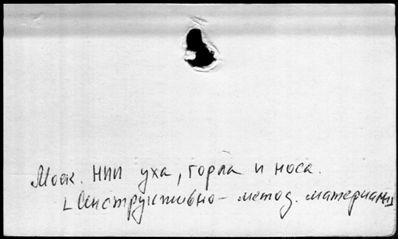 Моск. НИИ уха, горла и носа.
[Инструктивно-метод. материалы]